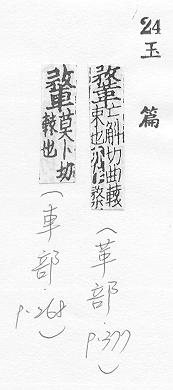 24
玉篇
鞪亡斛切曲轅
束也亦作楘
(革部 p.377)
莫卜切
也
(車部 p.268)